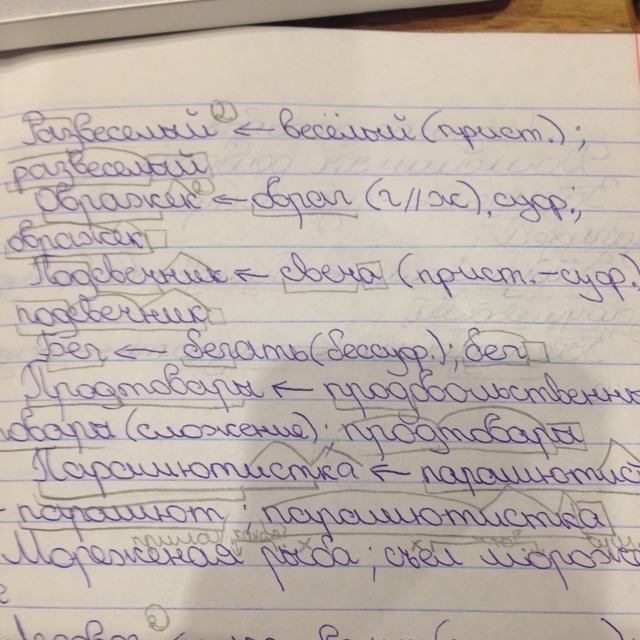 Развеселый² ← весёлый (прист.);
развеселый
Овражек ← овраг (г//ж), суф.;
овражек
Подсвечник ← свеча (прист.-суф.)
подсвечник
Бег ← бегать (бессуф.); бег
Продтовары ← продовольственны
товары (сложение); продтовары
Парашютистка ← парашютис
← парашют; парашютистка
Мороженая рыба; съел морож